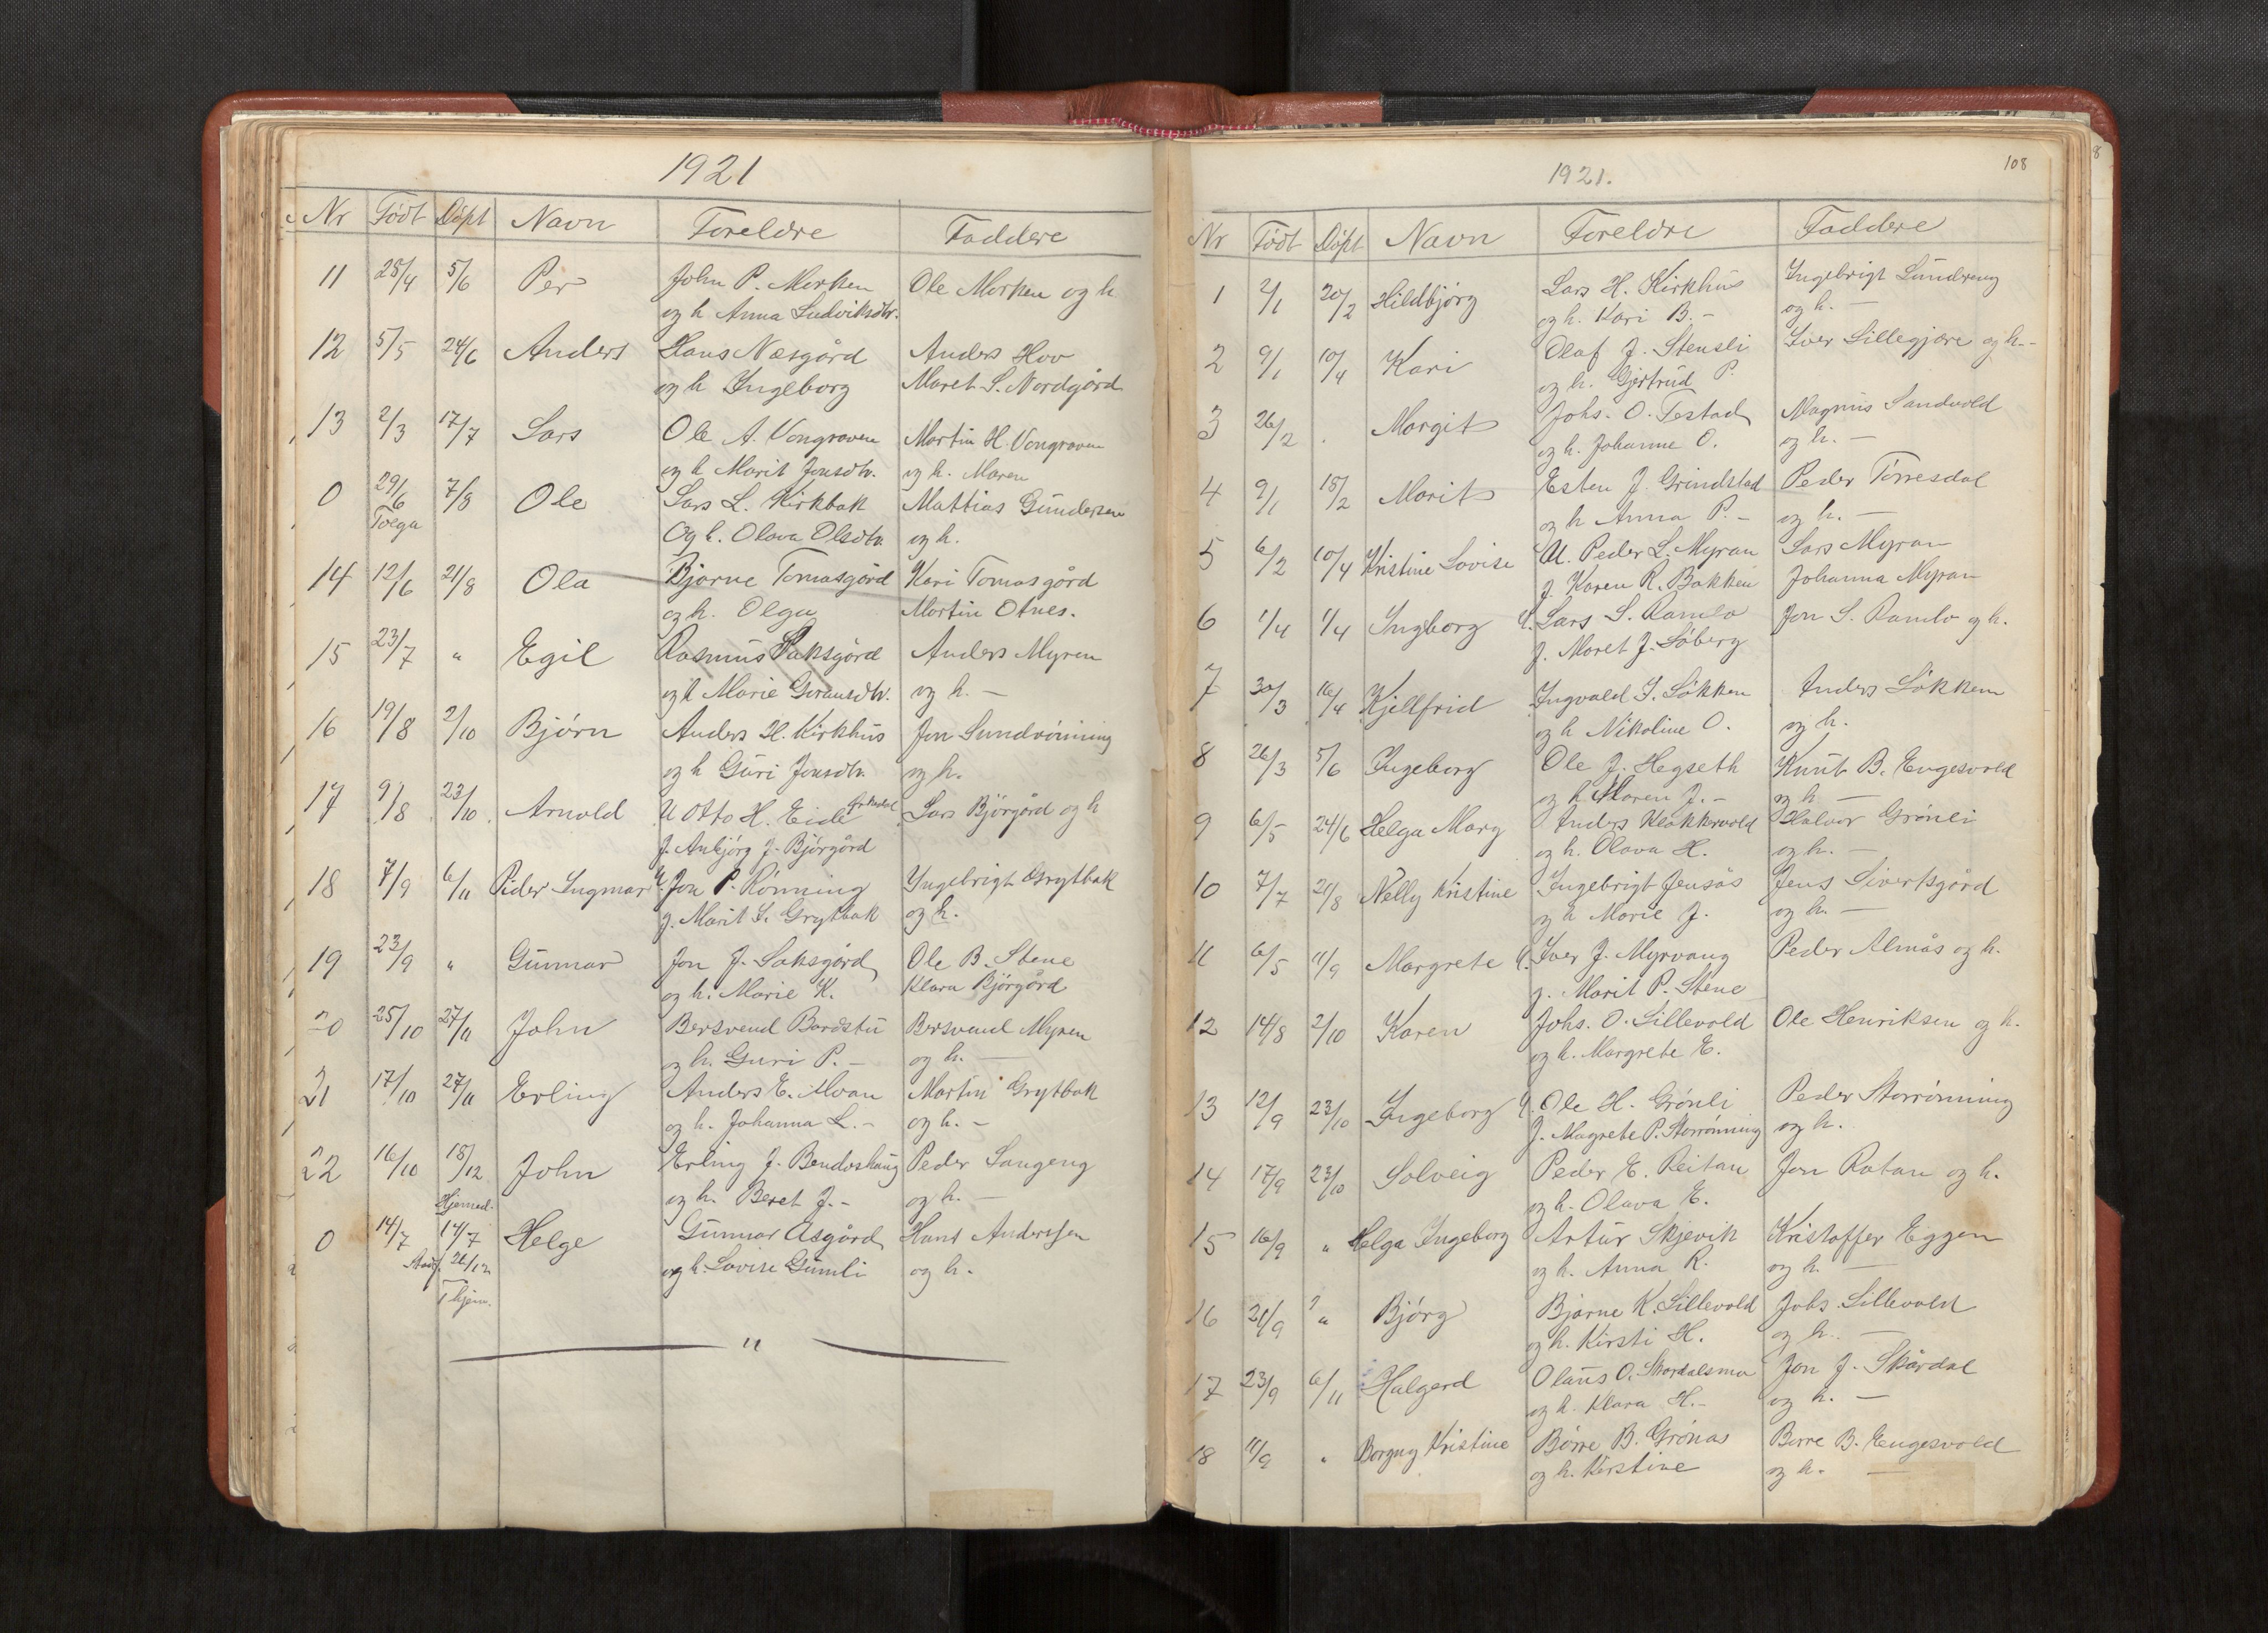 1921
Nr Født Døpt Navn Foreldre Faddere
11 25/4 5/6 Per John P. Morken Ole Morken og h
og h Anna Ludviksdtr.
12 5/5 24/6 Anders Hans Nesgård Anders Hov
og h Ingeborg Maret S. Nordgård
13 2/3 17/7 Lars Ole A. Vongraven Martin H. Vongraven
og h Marit Jonsdtr. og h. Maren
0 29/6 7/8 Ole Lars L. Kirkbak Mattias Gundersen
Tolga Og h. Olava Olsdtr. og h.
14 12/6 21/8 Ola Bjarne Tomasgård Kari Tomasgård
og h. Olga Martin Otnes.
15 23/7 " Egil Rasmus Anders Myren
og h Marie og h. —
16 19/8 2/10 Bjørn Anders H. Kirkhus Jon Sundrønning
og h Guri Jonsdtr. og h.
17 9/8 23/10 Arnold U Otto H. Eide Lars Bjørgård og h
J. Anbjørg J. Bjørgård
18 7/9 6/11 Peder Ingmar U. Jon P. Rønning Ingebrigt Grytbak
J. Marit I. Grytbak og h.
19 23/9 " Gunnar Jon J. Laksgård Ole B. Stene
og h. Marie K. Klara Bjørgård
20 25/10 27/11 John Bersvend Bardstu Bersvend Myren
og h. Guri P. — og h. —
21 17/10 27/11 Erling Anders E. Moan Martin Grytbak
og h. Johanna L. — og h. —
22 16/10 18/12 John Erling J. Bendoshaug Peder Langeng
Hjemmed. og h. Beret J. — og h. —
0 14/7 14/7 Helge Gunnar Åsgård Hans Anderssen
26/12 og h. Lovise Gumli og h.
"
108
1921.
Nr Født Døpt Navn Foreldre Faddere
1 2/1 20/2 Hildbjørg Lars H. Kirkhus Ingebrigt Lundreng
og h. Kari B. — og h. —
2 9/1 10/4 Kari Olaf J. Stensli Iver Lillegjære og h. —
og h. Gjertrud P.
3 26/2 . Margit Johs. O. Testad Magnus Sandvold
og h. Johanne O. og h. —
4 9/1 18/2 Marit Esten J. Grindstad Peder Torresdal
og h Anna P. — og h. —
5 6/2 10/4 Kristine Lovise U. Peder L. Myran Lars Myran
J. Karen R. Bakken Johanna Myran
6 1/4 1/4 Ingborg U. Lars S. Ramlo Jon S. Ramlo og h.
J. Maret J. Løberg
7 30/3 16/4 Kjellfrid Ingvald I. Løkken Anders Løkken
og h Nikoline O. og h.
8 26/3 5/6 Ingeborg Ole J. Hegseth Knut B. Engesvold
og h Maren J. — og h —
9 6/5 24/6 Helga Marg Anders Klokkervold Halvor Grønli
og h. Olava H. og h. —
10 7/7 21/8 Nelly Kristine Ingebrigt Jensås Jens Sivertsgård
og h Marie J. og h. —
11 6/5 11/9 Margrete U. Iver J. Myrvang Peder Almås og h.
J. Marit P. Stene
12 14/8 2/10 Karen Johs. O. Lillevold Ole Henriksen og h.
og h. Margrete E.
13 12/9 23/10 Ingeborg U. Ole H. Grønli Peder Storrønning
J. Magrete P. Storrønning og h.
14 17/9 23/10 Solveig Peder E. Reitan Jon Ratan og h.
og h. Olava E.
15 16/9 " Helga Ingeborg Artur Skjevik Kristoffer Eggen
og h. Anna R. og h. —
16 21/9 " Bjørg Bjarne K. Lillevold Johs. Lillevold
og h. Kirsti H. og h. —
17 23/9 6/11 Halgerd Olaus O. Skardalsmo Jon J. Skårdal
og h. Klara H. — og h. —
18 11/9 " Borgny Kristine Børre B. Grønås Børre B. Engesvold
og h. Kirstine og h. —